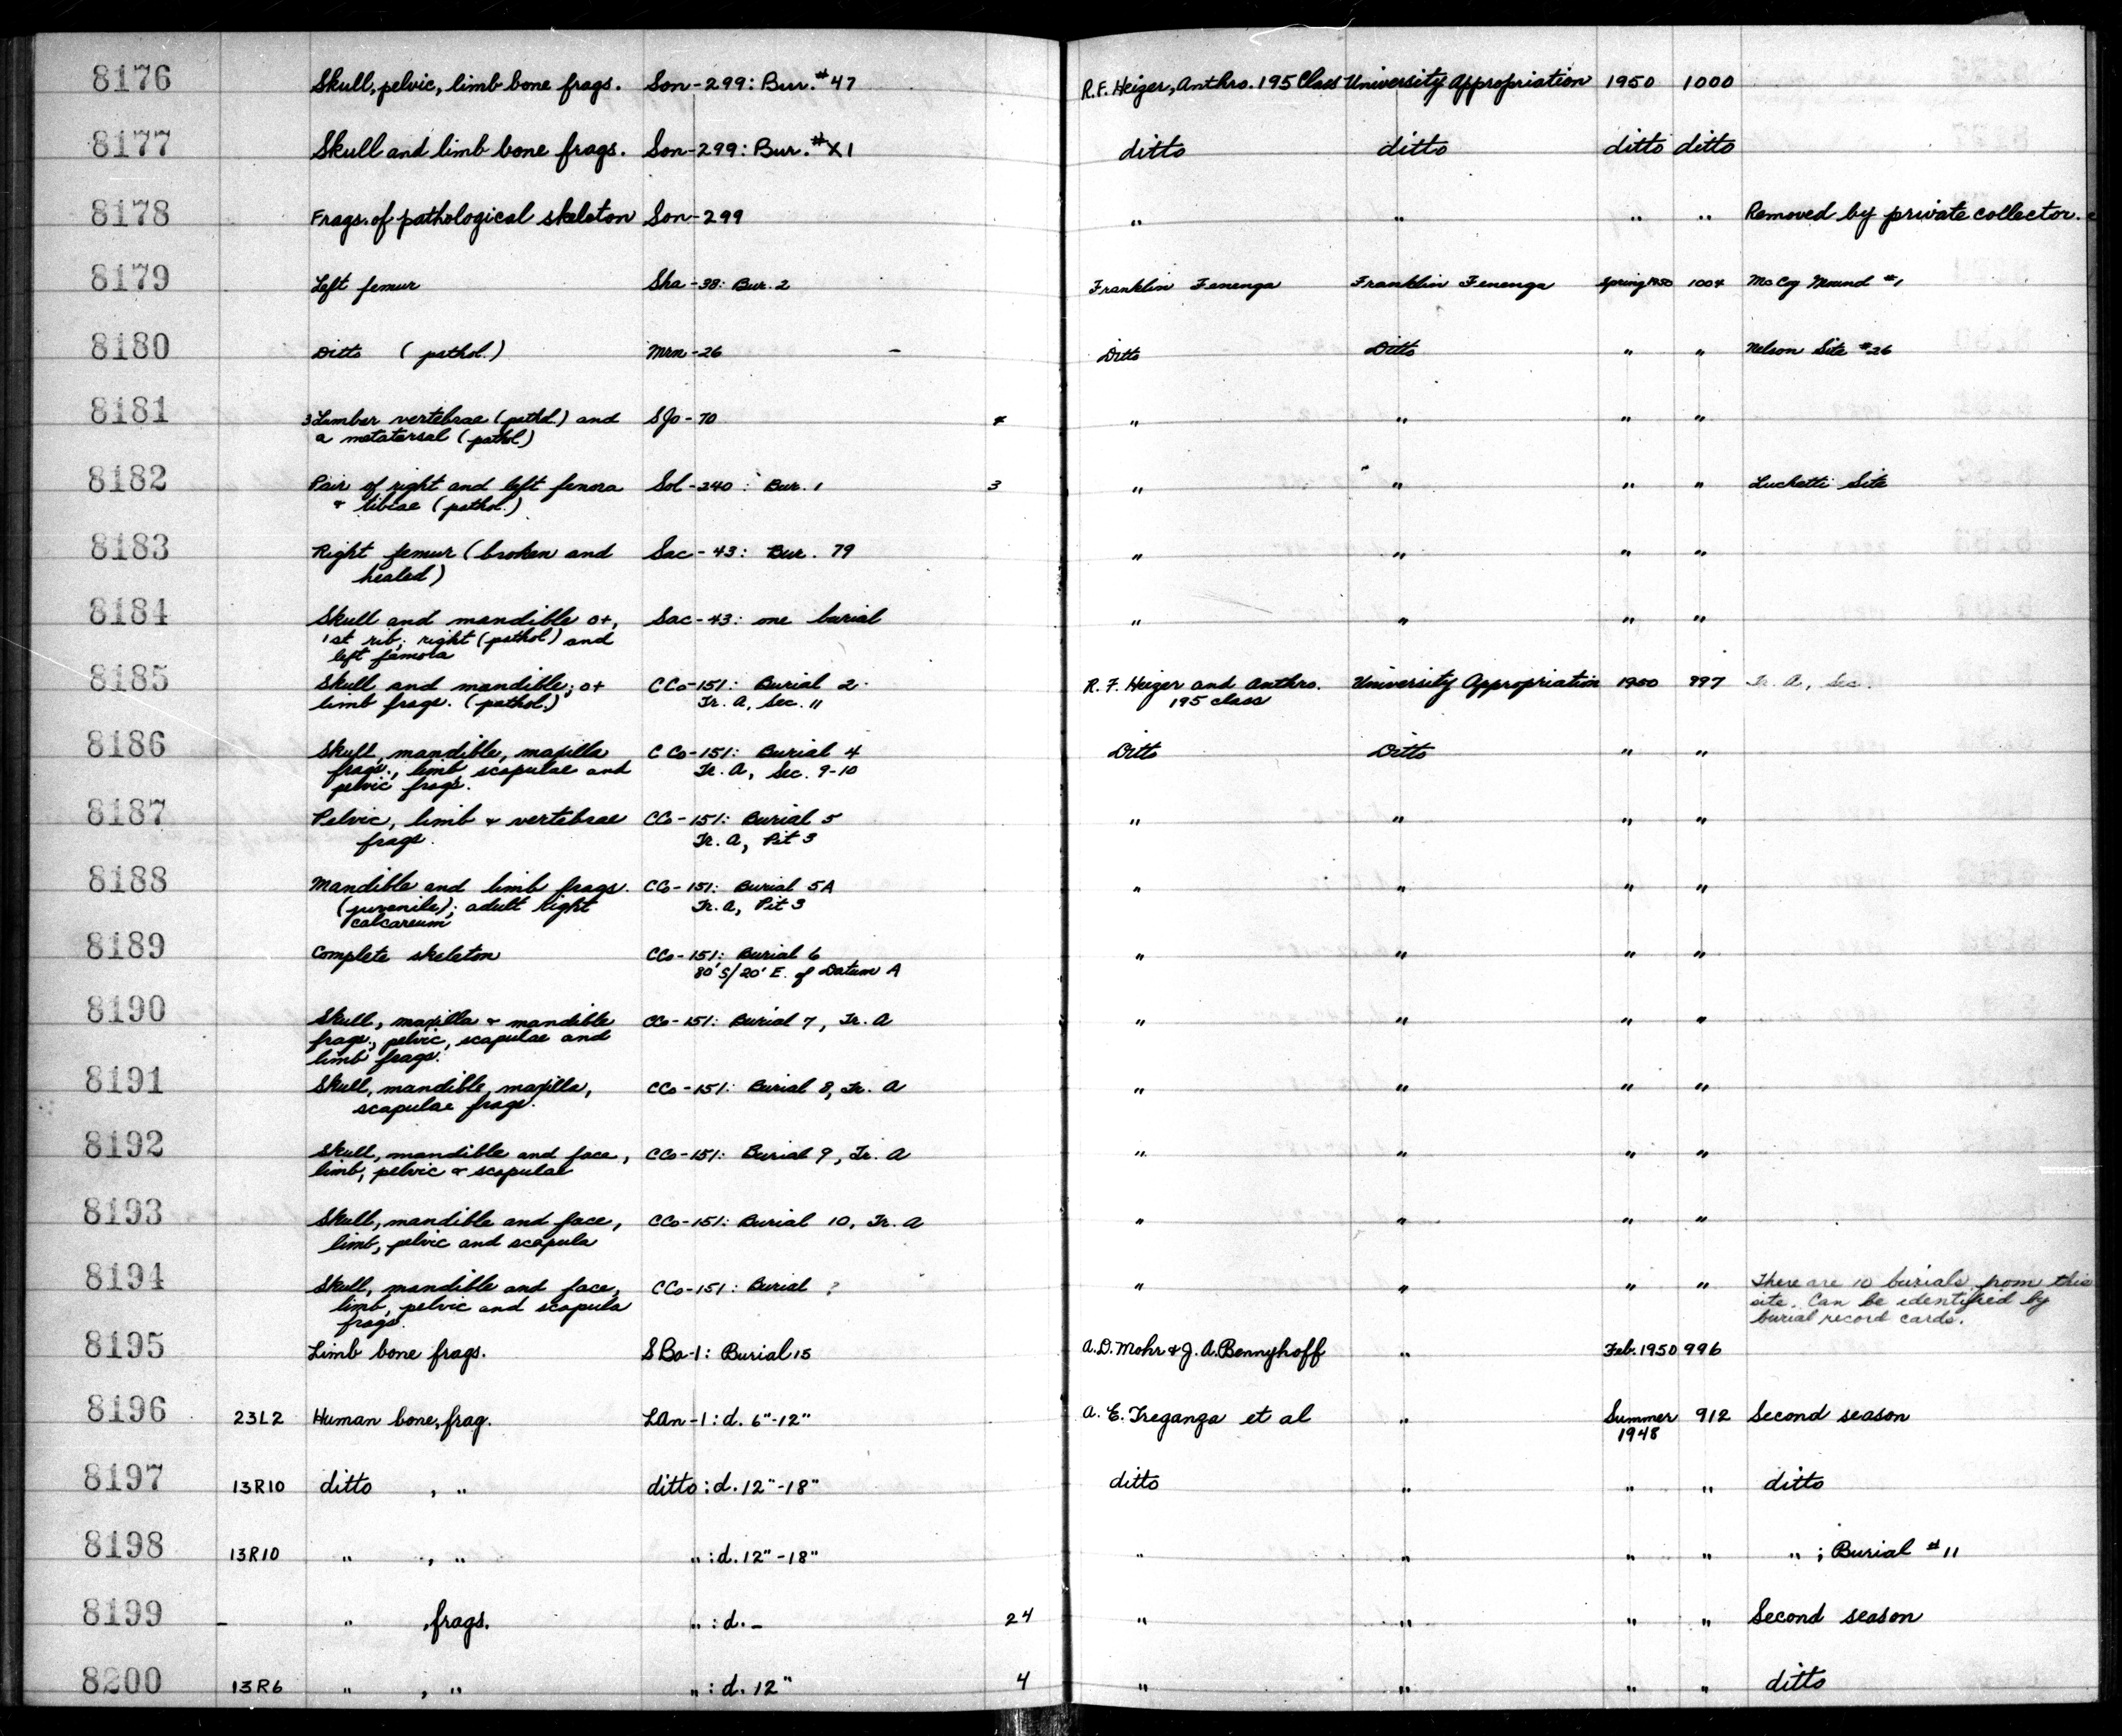 8176 Skull, pelvic, limb bone frags. Son-299: Bur. #47 R.F. Heizer, Anthro. 195 Class University Appropriation 1950 1000
8177 Skull and limb bone frags. Son-299: Bur. #X1 ditto ditto ditto ditto
8178 Frags. of pathological skeleton Son-299 " " " " Removed by private collector.
8179 Left femur Sha-38: Bur. 2 Franklin Fenenga Franklin Fenenga Spring 1950 1004 McCoy Mound #1
8180 Ditto (pathol.) Mrn-26 - Ditto Ditto " " Nelson Site #26
8181 3 Lumbar vertebrae (pathol.) and SJo-70 4 " " " "
a metatarsal (pathol.)
8182 Pair of right and left femora Sol-240: Bur. 1 3 " " " " Luchetti Site
+ tibiae (pathol.)
8183 Right femur (broken and Sac-43: Bur. 79 " " " "
healed)
8184 Skull and mandible o+, Sac-43: one burial " " " "
1st rib; right (pathol) and
left femora
8185 Skull and mandible; o+ CCo-151: Burial 2 R. F. Heizer and Anthro. University Appropriation 1950 997 Tr. A, Sec.
limb frags. (pathol.) Tr. A, Sec. 11 195 class
8186 Skull, mandible, maxilla CCo-151: Burial 4 Ditto Ditto " "
frags., limb, scapulae and Tr. A, Sec. 9-10
pelvic frags.
8187 Pelvic, limb + vertebrae CCo-151: Burial 5 " " " "
frags. Tr. A, Pit 3
8188 Mandible and limb frags. CCo-151: Burial 5A " " " "
(juvenile); adult right Tr. A, Pit 3
calcareum
8189 Complete skeleton CCo-151: Burial 6 " " " "
80'S/20'E. of Datum A
8190 Skull, maxilla + mandible CCo-151: Burial 7, Tr. A " " " "
frags., pelvic, scapulae and
limb frags.
8191 Skull, mandible, maxilla, CCo-151: Burial 8, Tr. A " " " "
scapulae frags.
8192 Skull, mandible and face, CCo-151: Burial 9, Tr. A " " " "
limb, pelvic + scapulae
8193 Skull, mandible and face, CCo-151: Burial 10, Tr. A " " " "
limb, pelvic and scapula
8194 Skull, mandible and face, CCo-151: Burial ? " " " " There are 10 burials from this
limb, pelvic and scapula site. Can be identified by
frags. burial record cards.
8195 Limb bone frags. SBa-1: Burial 15 A.D. Mohr + J.A. Bennyhoff " Feb. 1950 996
8196 23L2 Human bone, frag. LAn-1: d. 6"-12" A. E. Treganza et al " Summer 912 Second season
1948
8197 13R10 ditto , " ditto: d. 12"-18" ditto " " " ditto
8198 13R10 " , " ": d. 12"-18" " " " " "; Burial #11
8199 - " , frags. ": d. - 24 " " " " Second season
8200 13R6 " , " ": d. 12" 4 " " " " ditto